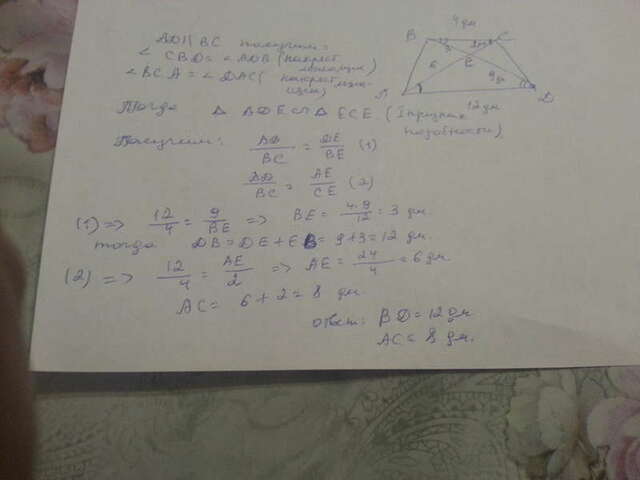 AD || BC получим:
∠ CBD = ∠ ADB (накрест лежащие)
∠ BCA = ∠ DAC (накрест лежащие)
Тогда △ ADE ∽ △ ECE. (I признак подобности)
Получим: AD/BC = DE/BE (1)
AD/BC = AE/CE (2)
(1) => 12/4 = 9/BE => BE = 4·9/12 = 3 дм.
тогда DB = DE + EB = 9+3 = 12 дм.
(2) => 12/4 = AE/2 => AE = 24/4 = 6 дм
AC = 6 + 2 = 8 дм.
Ответ: BD = 12 дм
AC = 8 дм.
4 дм
B C
3
E
6 9 дм
A D
12 дм